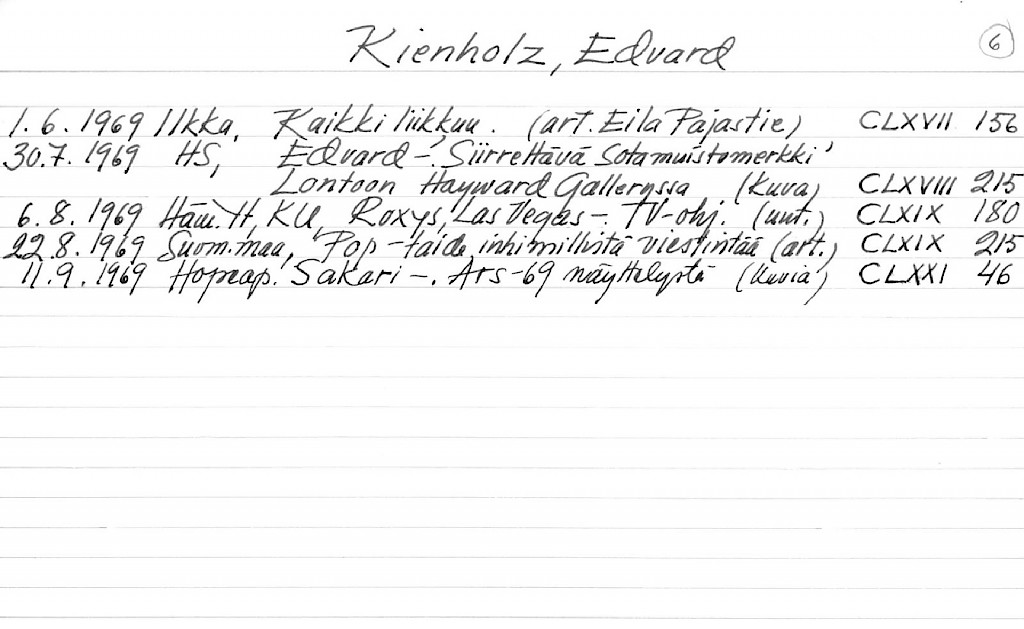 Kienholz, Edvard 6
1.6.1969 Ilkka, Kaikki liikkuu. (art. Eila Pajastie) CLXVII 156
30.7.1969 HS, Edvard -. 'Siirrettävä Sotamuistomerkki'
Lontoon Hayward Galleryssa (kuva) CLXVIII 215
6.8.1969 Häm.YH, KU, Roxys, Las Vegas -. TV-ohj. (uut.) CLXIX 180
22.8.1969 Suom.maa, Pop-taide inhimillistä viestintää (art.) CLXIX 215
11.9.1969 Hopeap. Sakari -. Ars-69 näyttelystä (kuvia) CLXXI 46